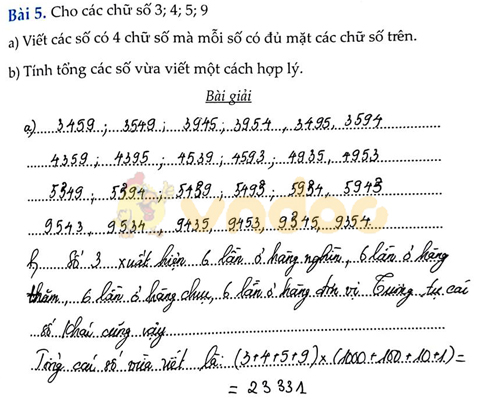 Bài 5. Cho các chữ số 3; 4; 5; 9
a) Viết các số có 4 chữ số mà mỗi số có đủ mặt các chữ số trên.
b) Tính tổng các số vừa viết một cách hợp lý.
Bài giải
a) 3459; 3549; 3945; 3954, 3495, 3594
4359; 4395; 4539; 4593; 4935, 4953
5349; 5394; 5439; 5493; 5934, 5943
9543, 9534, 9435, 9453, 9345, 9354
b, Số 3 xuất hiện 6 lần ở hàng nghìn, 6 lần ở hàng
trăm, 6 lần ở hàng chục, 6 lần ở hàng đơn vị. Tương tự các
số khác cũng vậy
Tổng các số vừa viết là: (3+4+5+9)x(1000+100+10+1)=
= 23331